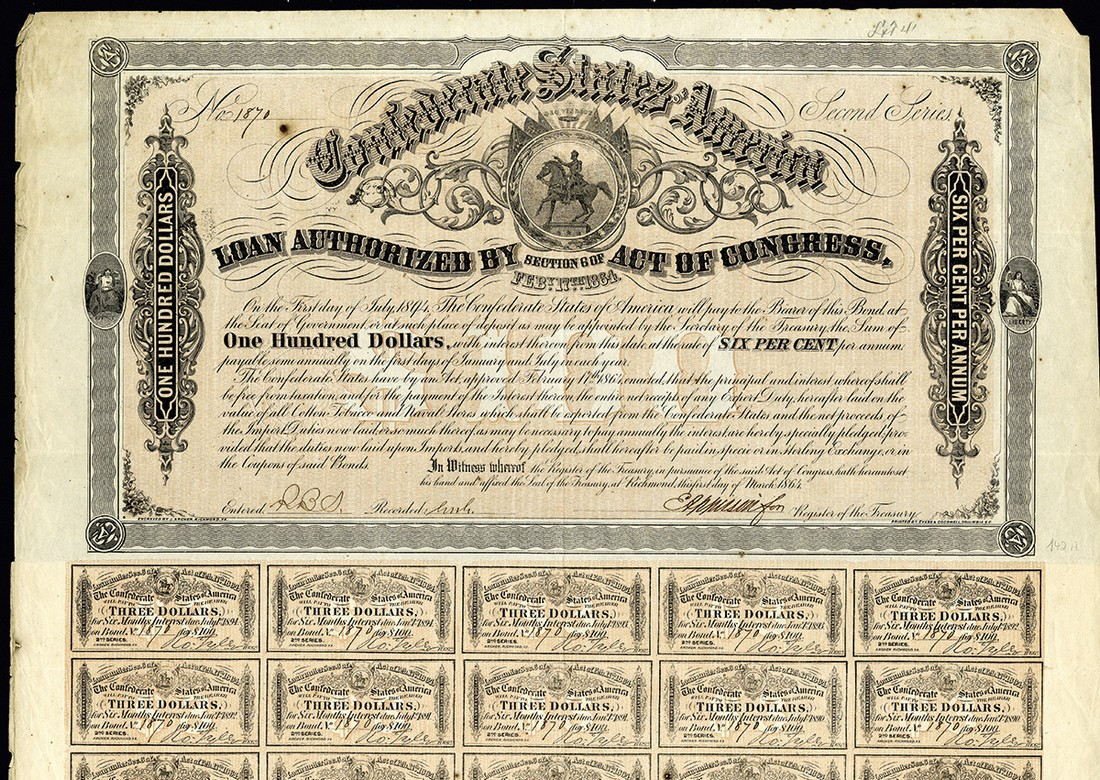 No. 1870
Second Series
Confederate States America
LOAN AUTHORIZED BY SECTION 6 OF ACT OF CONGRESS,
FEBY. 17TH. 1864.
ONE HUNDRED DOLLARS
SIX PER CENT PER ANNUM
LIBERTY
On the First day of July, 1894, The Confederate States of America will pay to the Bearer of this Bond, at
the Seat of Government, or at such place of deposit as may be appointed by the Secretary of the Treasury, the Sum of
One Hundred Dollars, with interest thereon from this date, at the rate of SIX PER CENT per annum,
payable semi annually on the first days of January and July in each year.
The Confederate States have by an Act, approved February 17th 1864, enacted, that the principal and interest whereof shall
be free from taxation, and for the payment of the Interest hereon, the entire net receipts of any Export Duty, hereafter laid on the
value of all Cotton Tobacco and Naval Stores which shall be exported from the Confederate States and the net proceeds of
the Import Duties now laid, or so much thereof as may be necessary to pay annually the interest, are hereby specially pledged, pro-
vided that the duties now laid upon Imports, and hereby pledged, shall hereafter be paid in specie or in Sterling Exchange, or in
the Coupons of said Bonds.
In Witness whereof the Register of the Treasury, in pursuance of the said Act of Congress, hath hereunto set
his hand and affixed the Seal of the Treasury, at Richmond, this first day of March 1864
Entered Recorded for Register of the Treasury
ENGRAVED BY J. ARCHER, RICHMOND, VA.
PRINTED BY EVANS & COGSWELL, COLUMBIA S.C.
142A
The Confederate States of America
WILL PAY TO THE BEARER
THREE DOLLARS,
for Six Months Interest due July 1st. 1894.
on Bond, No. 1870 for $100.
2ND SERIES.
ARCHER RICHMOND, VA.
The Confederate States of America
WILL PAY TO THE BEARER
THREE DOLLARS,
for Six Months Interest due Jany. 1st. 1894.
on Bond, No. 1870 for $100.
2ND SERIES.
ARCHER RICHMOND, VA.
The Confederate States of America
WILL PAY TO THE BEARER
THREE DOLLARS,
for Six Months Interest due July 1st. 1893.
on Bond, No. 1870 for $100.
2ND SERIES.
ARCHER RICHMOND, VA.
The Confederate States of America
WILL PAY TO THE BEARER
THREE DOLLARS,
for Six Months Interest due Jany. 1st. 1893.
on Bond, No. 1870 for $100.
2ND SERIES.
ARCHER RICHMOND, VA.
The Confederate States of America
WILL PAY TO THE BEARER
THREE DOLLARS,
for Six Months Interest due July 1st. 1892.
on Bond, No. 1870 for $100.
2ND SERIES.
ARCHER RICHMOND, VA.
The Confederate States of America
WILL PAY TO THE BEARER
THREE DOLLARS,
for Six Months Interest due Jany. 1st. 1892.
on Bond, No. 1870 for $100.
2ND SERIES.
ARCHER RICHMOND, VA.
The Confederate States of America
WILL PAY TO THE BEARER
THREE DOLLARS,
for Six Months Interest due July 1st. 1891.
on Bond, No. 1870 for $100.
2ND SERIES.
ARCHER RICHMOND, VA.
The Confederate States of America
WILL PAY TO THE BEARER
THREE DOLLARS,
for Six Months Interest due Jany. 1st. 1891.
on Bond, No. 1870 for $100.
2ND SERIES.
ARCHER RICHMOND, VA.
The Confederate States of America
WILL PAY TO THE BEARER
THREE DOLLARS,
for Six Months Interest due July 1st. 1890.
on Bond, No. 1870 for $100.
2ND SERIES.
ARCHER RICHMOND, VA.
The Confederate States of America
WILL PAY TO THE BEARER
THREE DOLLARS,
for Six Months Interest due Jany. 1st. 1890.
on Bond, No. 1870 for $100.
2ND SERIES.
ARCHER RICHMOND, VA.